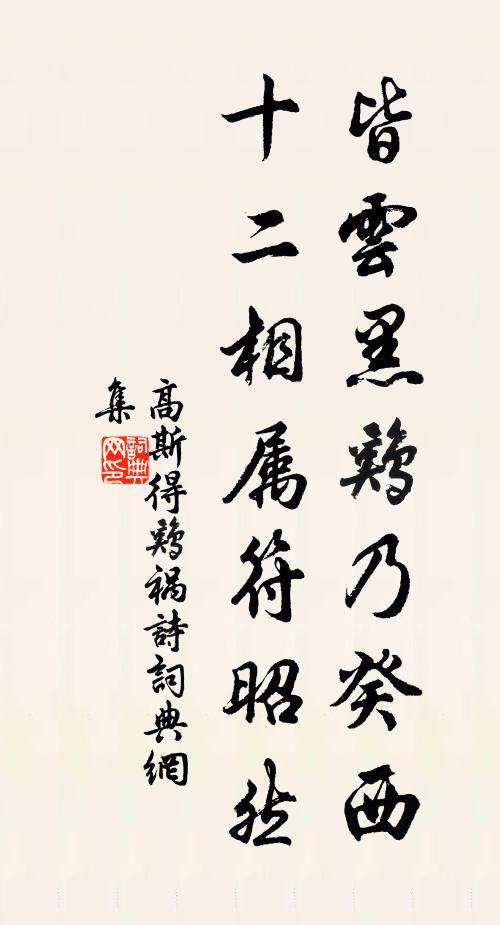 皆雲黑鷄乃癸西
十二相属符昭然
高斯得鷄禍詩詞典網
集
詞典
网印